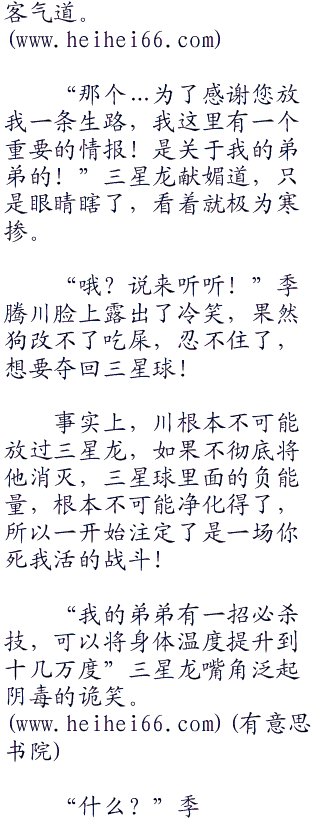 客气道。
(www.heihei66.com)
“那个…为了感谢您放
我一条生路，我这里有一个
重要的情报！是关于我的弟
弟的！”三星龙献媚道，只
是眼睛瞎了，看着就极为寒
掺。
“哦？说来听听！”季
腾川脸上露出了冷笑，果然
狗改不了吃屎，忍不住了，
想要夺回三星球！
事实上，川根本不可能
放过三星龙，如果不彻底将
他消灭，三星球里面的负能
量，根本不可能净化得了，
所以一开始注定了是一场你
死我活的战斗！
“我的弟弟有一招必杀
技，可以将身体温度提升到
十几万度”三星龙嘴角泛起
阴毒的诡笑。
(www.heihei66.com)(有意思
书院)
“什么？”季